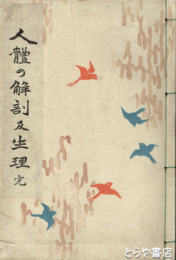 人體の解剖及生理 完
とらや書店